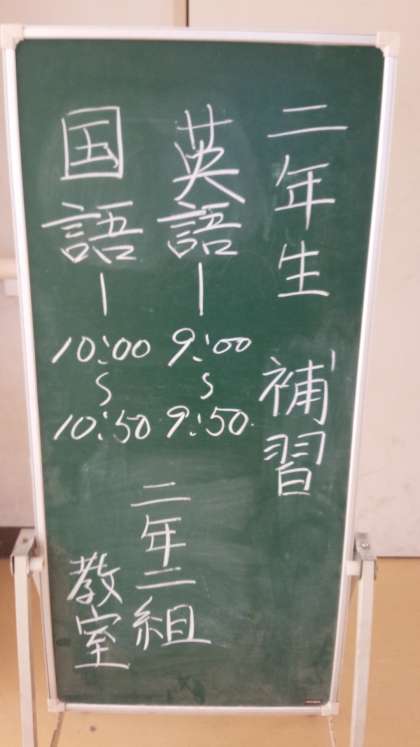 二年生 補習
英語ー9:00~9:50
国語ー10:00~10:50
二年二組
教室